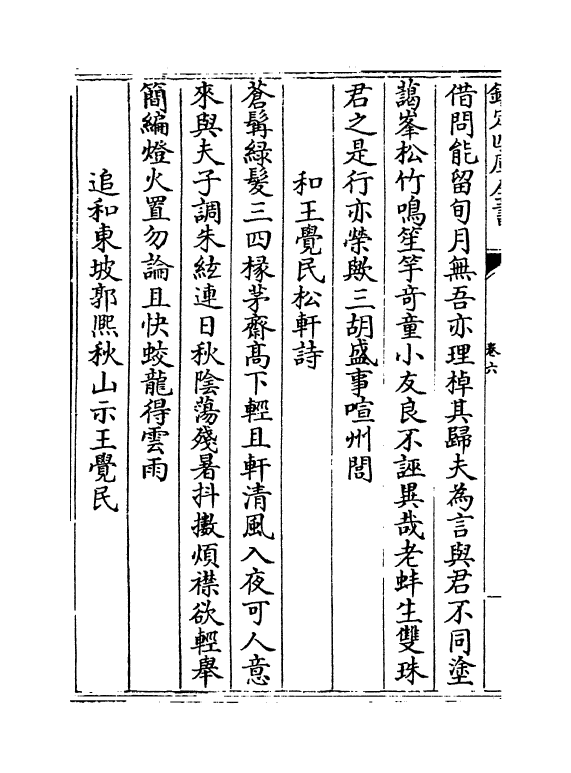 欽定四庫全書
卷六
借問能留旬月無吾亦理棹其歸夫為言與君不同塗
藹峯松竹鳴笙竽奇童小友良不誣異哉老蚌生雙珠
君之是行亦榮歟三胡盛事喧州閭
和王覺民松軒詩
蒼髯綠髮三四椽茅齋高下輕且軒清風入夜可人意
來與夫子調朱絃連日秋陰蕩殘暑抖擻煩襟欲輕舉
簡編燈火置勿論且快蛟龍得雲雨
追和東坡郭熈秋山示王覺民